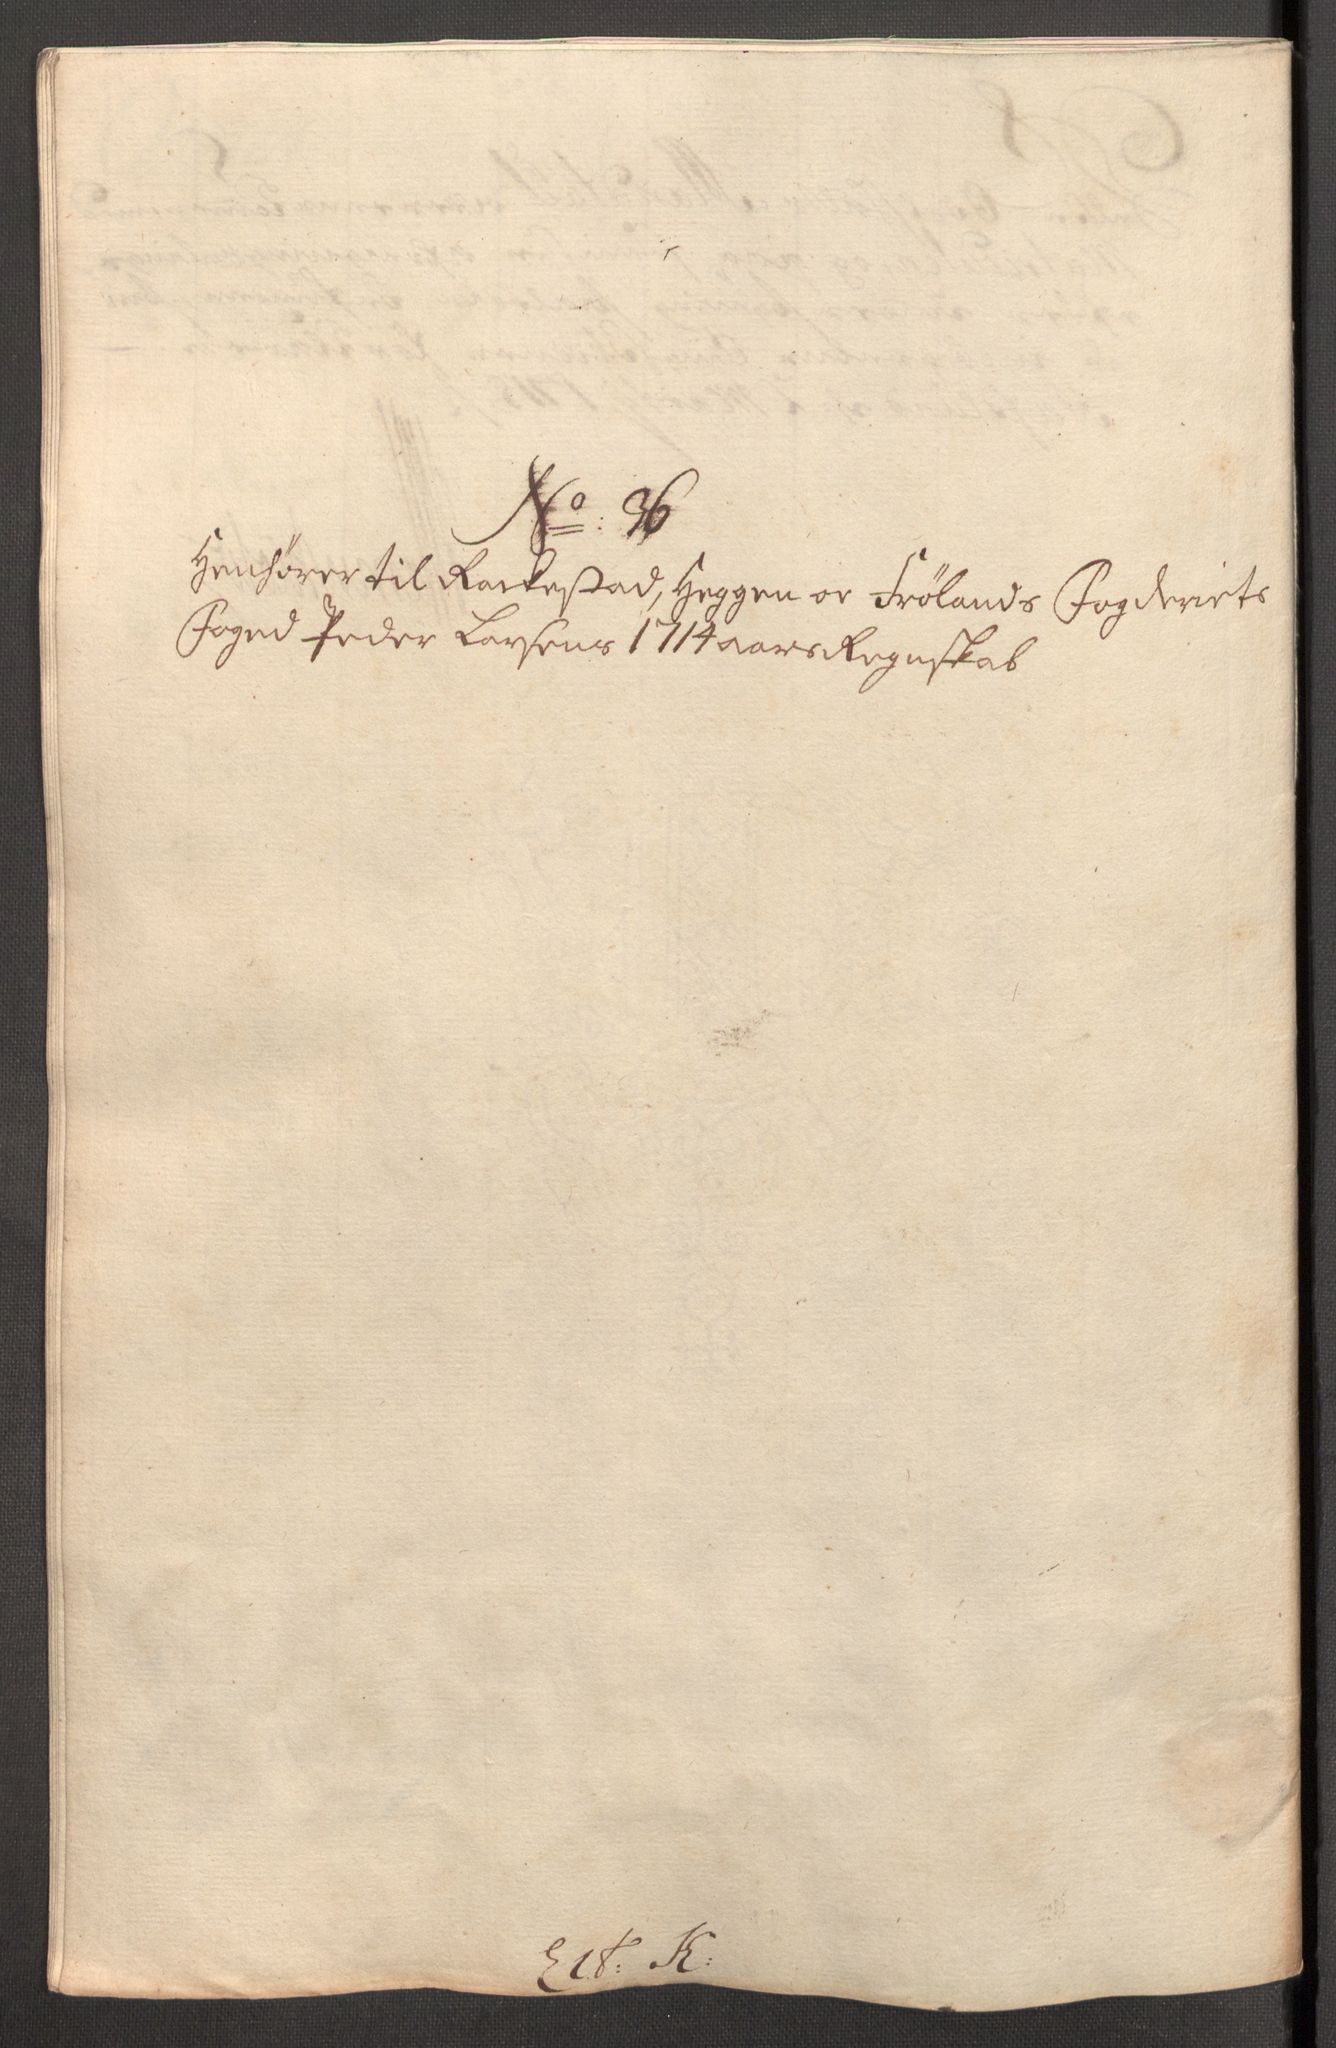 No: 36
Henhører til Rackestad, Heggen oc Frölands Fogderiets
Foged Peder Larsens 1714 aars Regnskab
Lit: K: